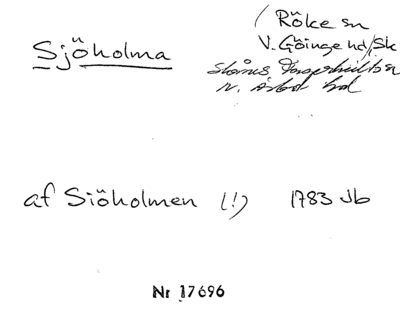 Sjöholma
(Röke sn
V. Göinge hd/Sk
N. Åsbo hd
af Siöholmen (!) 1783 Jb
Nr 17696